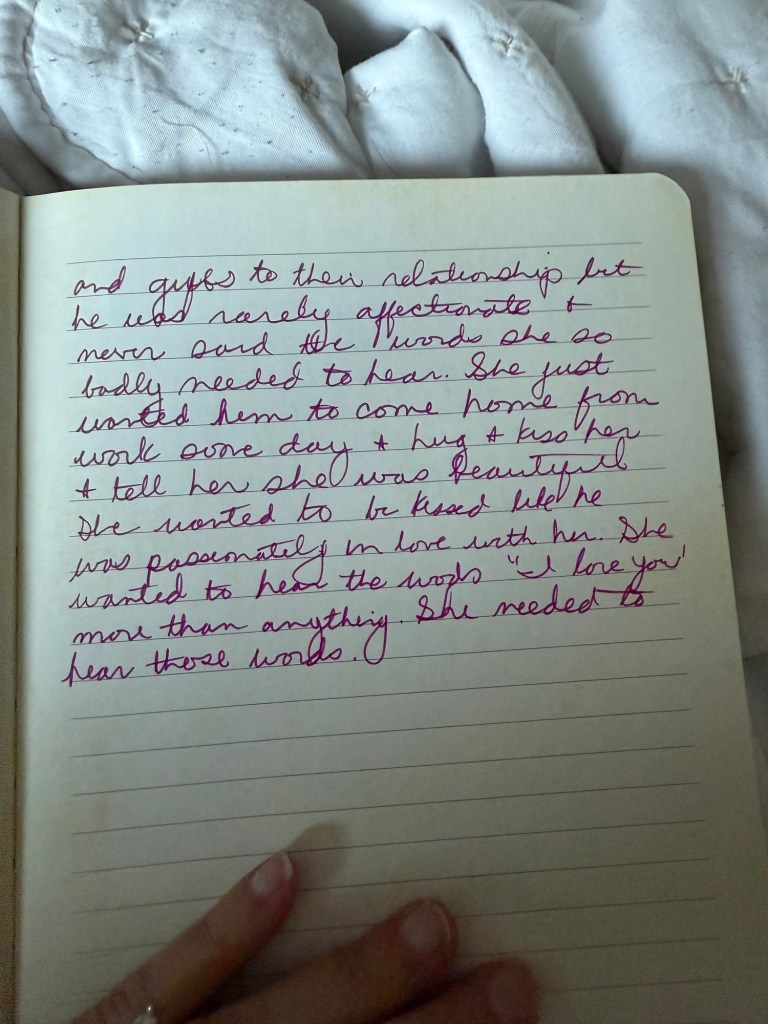 and gifts to their relationship but
he was rarely affectionate +
never said the words she so
badly needed to hear. She just
wanted him to come home from
work some day + hug + kiss her
+ tell her she was beautiful
She wanted to be kissed like he
was passionately in love with her. She
wanted to hear the words "I love you"
more than anything. She needed to
hear those words.